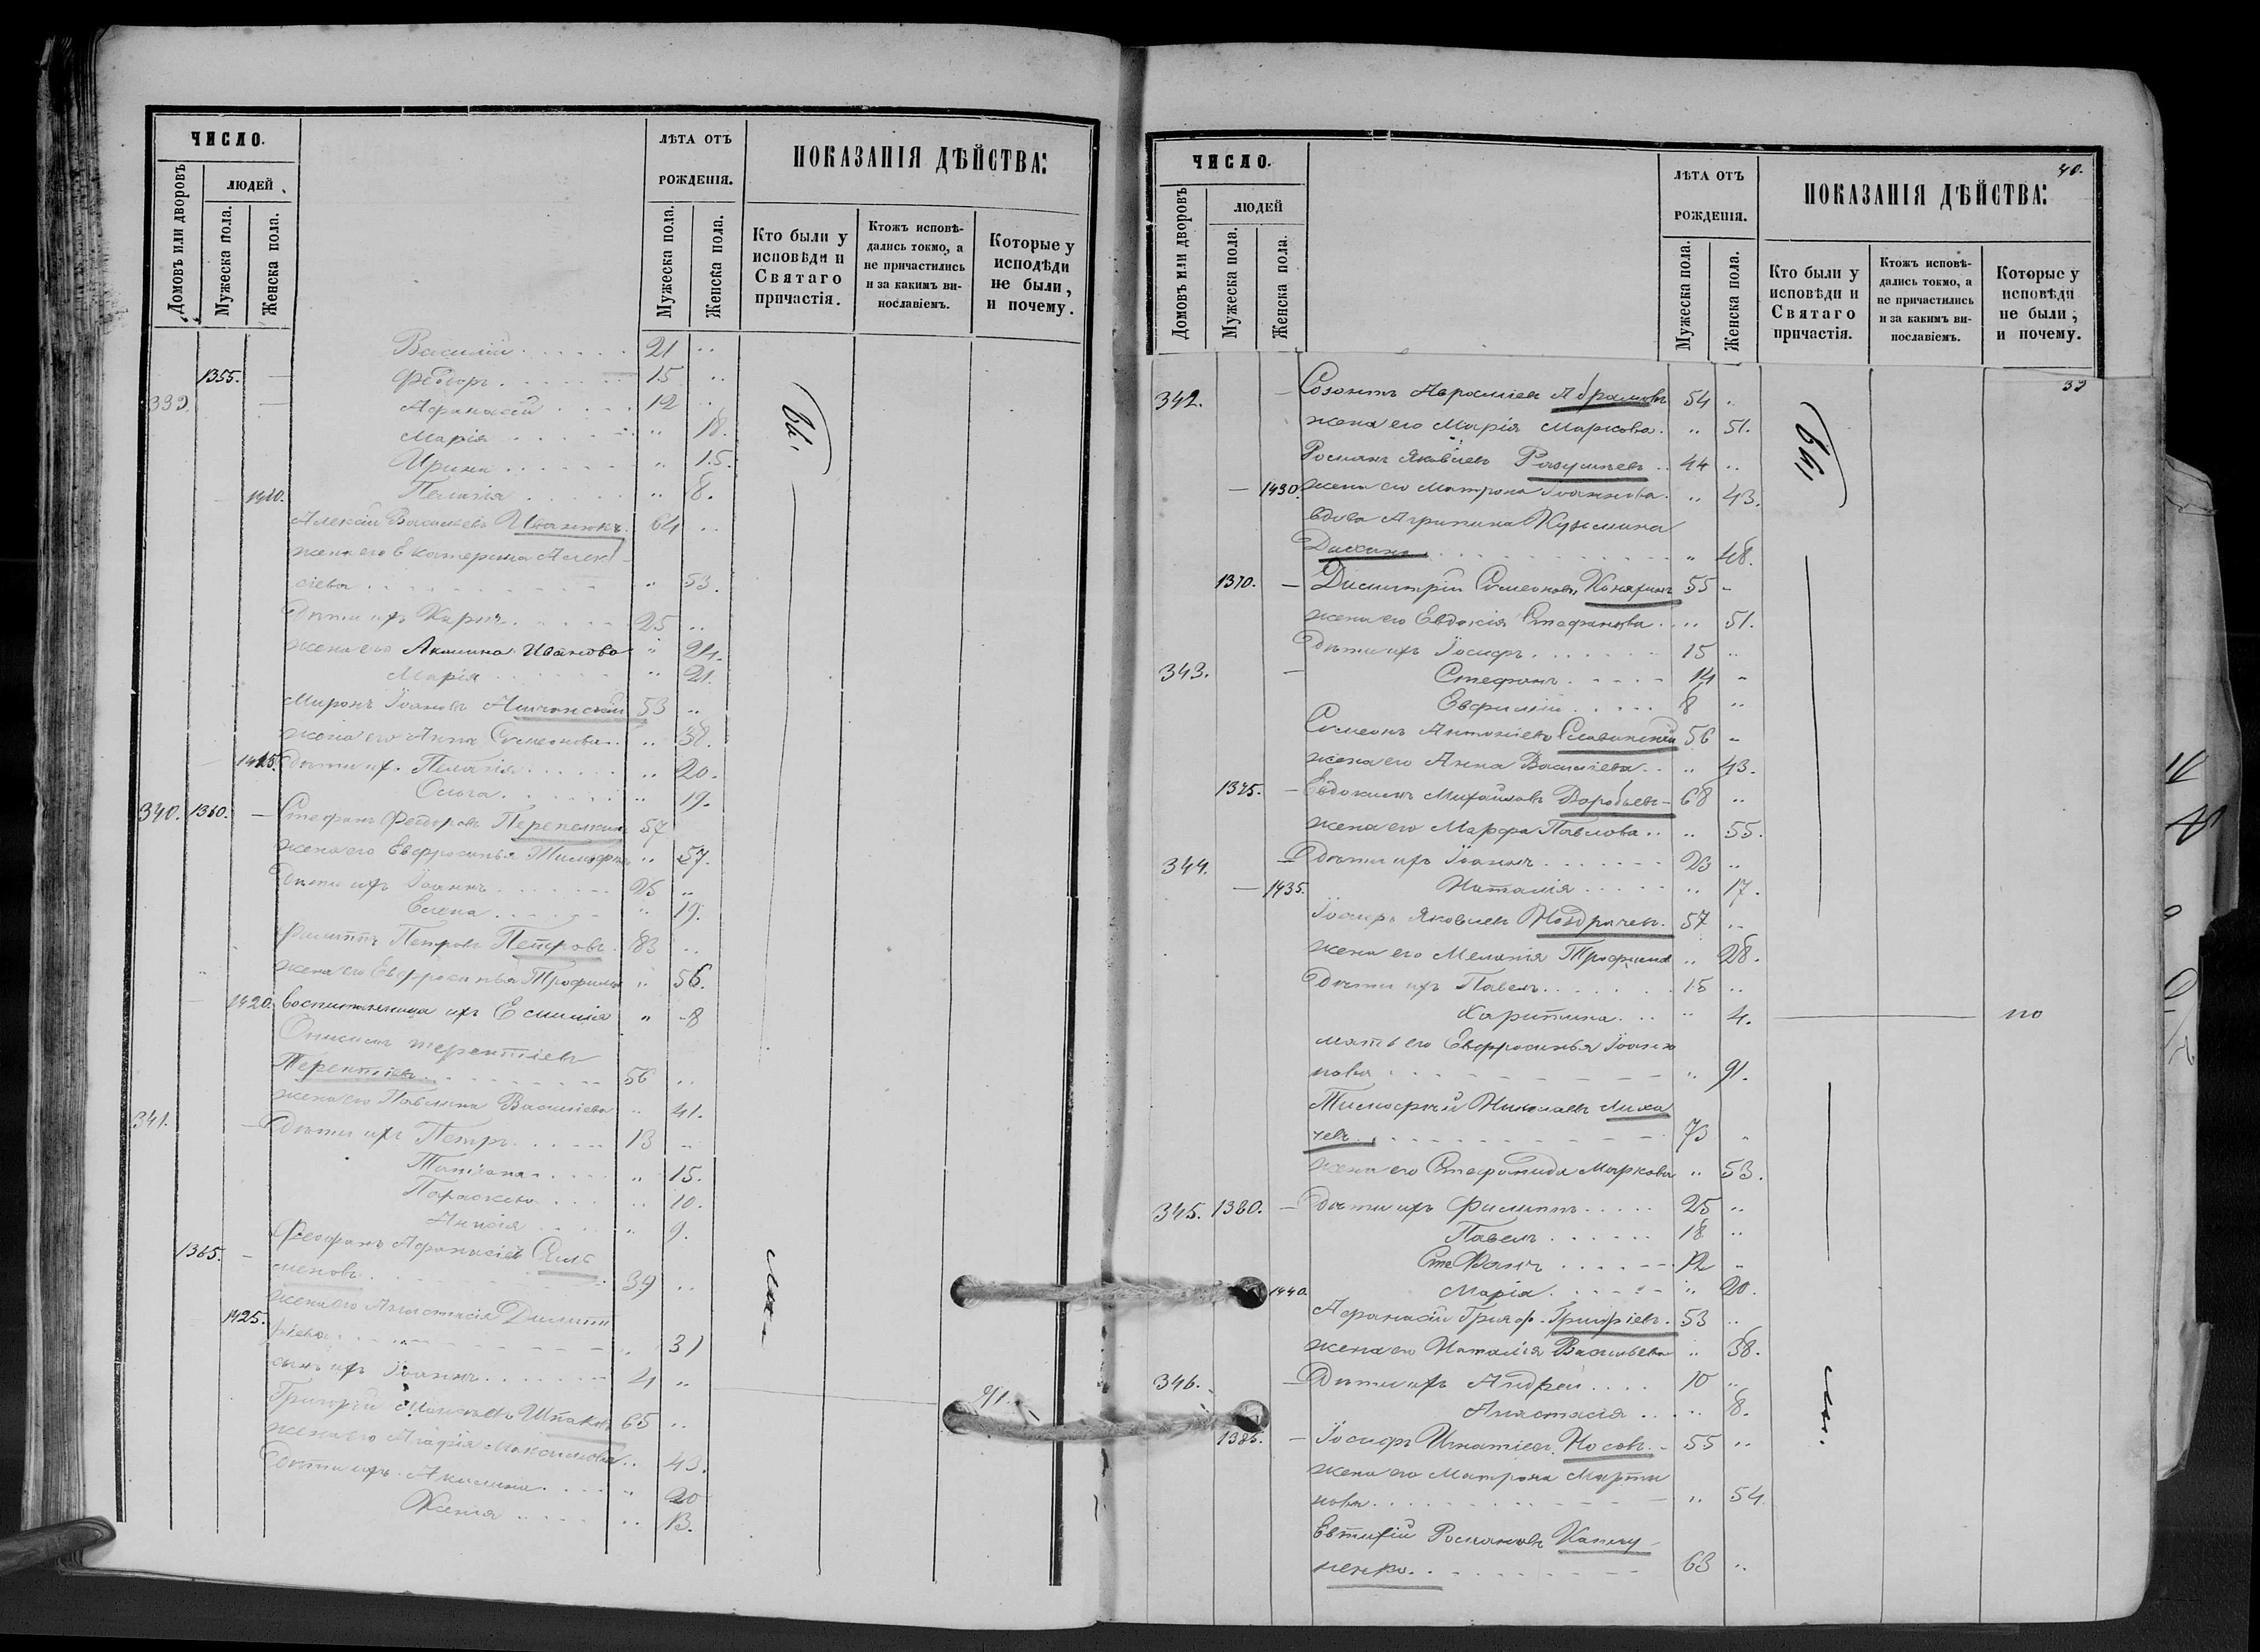 ЧИСЛО.
ЛѢТА ОТЪ РОЖДЕНІЯ.
ПОКАЗАНІЯ ДѢЙСТВА:
Домовъ или дворовъ
ЛЮДЕЙ
Мужеска пола.
Женска пола.
Мужеска пола.
Женска пола.
Кто были у исповѣди и Святаго причастія.
Ктожъ исповѣдались токмо, а не причастились и за какимъ винословіемъ.
Которые у исподѣди не были, и почему.
Василій 21
1355. Феодоръ 15
339. Афанасій 12
Марія 18.
Ирина 15.
1410. Пелагія 8.
Алексій Васильевъ 64
жена его Екатерина Алек
сіева 53.
дѣти ихъ Карпъ 25
жена его Акилина Иванова 24.
Марія 21.
Миронъ Іоановъ 53
жена его Анна Симеонова 38.
1415. дѣти их. Пелагія 20.
Ольга 19.
340. 1360. Стефанъ Феодоровъ Перепелкинъ 57
жена его Евфросинья 57.
дѣти ихъ Іоаннъ 25
Елена 19.
Филиппъ Петровъ Петровъ 83
жена его Евфросинья Трофимова 56.
1420. воспитанница ихъ 8
Онисимъ терентіевъ
Терентіевъ 56
жена его Павлина Васильева 41.
341. дѣти ихъ Петръ 13
Татіана 15.
Параскева 10.
Анисія 9.
1365. Феофанъ Афанасіев Силь
меновъ 39
1425. жена его Анастасія Димит
ріева 31
сынъ ихъ Іоаннъ 4
Григорій Шпаковъ 65
жена его Агафія Максимова 43.
дѣти ихъ Акилина 20
Ксенія 13.
Бы
ли
40.
ЧИСЛО.
ЛѢТА ОТЪ РОЖДЕНІЯ.
ПОКАЗАНІЯ ДѢЙСТВА:
Домовъ или дворовъ
ЛЮДЕЙ
Мужеска пола.
Женска пола.
Мужеска пола.
Женска пола.
Кто были у исповѣди и Святаго причастія.
Ктожъ исповѣдались токмо, а не причастились и за какимъ винословіемъ.
Которые у исповѣди не были, и почему.
39
342. Созонтъ Авраміевъ Абрамовъ 54
жена его Марія Маркова 51.
Романъ Яковлевъ Разумневъ 44
1430. жена его Матрона Іоаннова 43.
вдова Агрипина Кузьмина
48.
1370. Димитрій Симеоновъ Конякинъ 55
жена его Евдокія Стефанова 51.
дѣти ихъ Іосифъ 15
343. Стефанъ 14
Евфимій 8
Симеонъ Антоніевъ Славинскій 56
жена его Анна Васильева 43.
1375. Евдокимъ Михайловъ Воробьевъ 68
жена его Марфа Павлова 55.
344. дѣти ихъ Іоаннъ 23
1435. Наталія 17.
Іосифъ Яковлевъ Ноздрачевъ 57
жена его Меланія Трофимова 28.
дѣти ихъ Павелъ 15
Харитина 4. по
мать его Евфросинья Іоанн
нова 91.
Тимофей Николаевъ Лиха
чевъ 73
жена его Стефанида Маркова 53.
345. 1380. дѣти ихъ Филиппъ 25
Павелъ 18
Стефанъ 12
1440. Марія 20.
Афанасій Григор. Григоріевъ 53
жена его Наталія Васильева 38.
346. дѣти ихъ Андрей 10
Анастасія 8.
1385. Іосифъ Игнатіевъ Носовъ 55
жена его Матрона Марти
нова 54.
Евтихій Романовъ Капку
ненко 63
Бы
ли